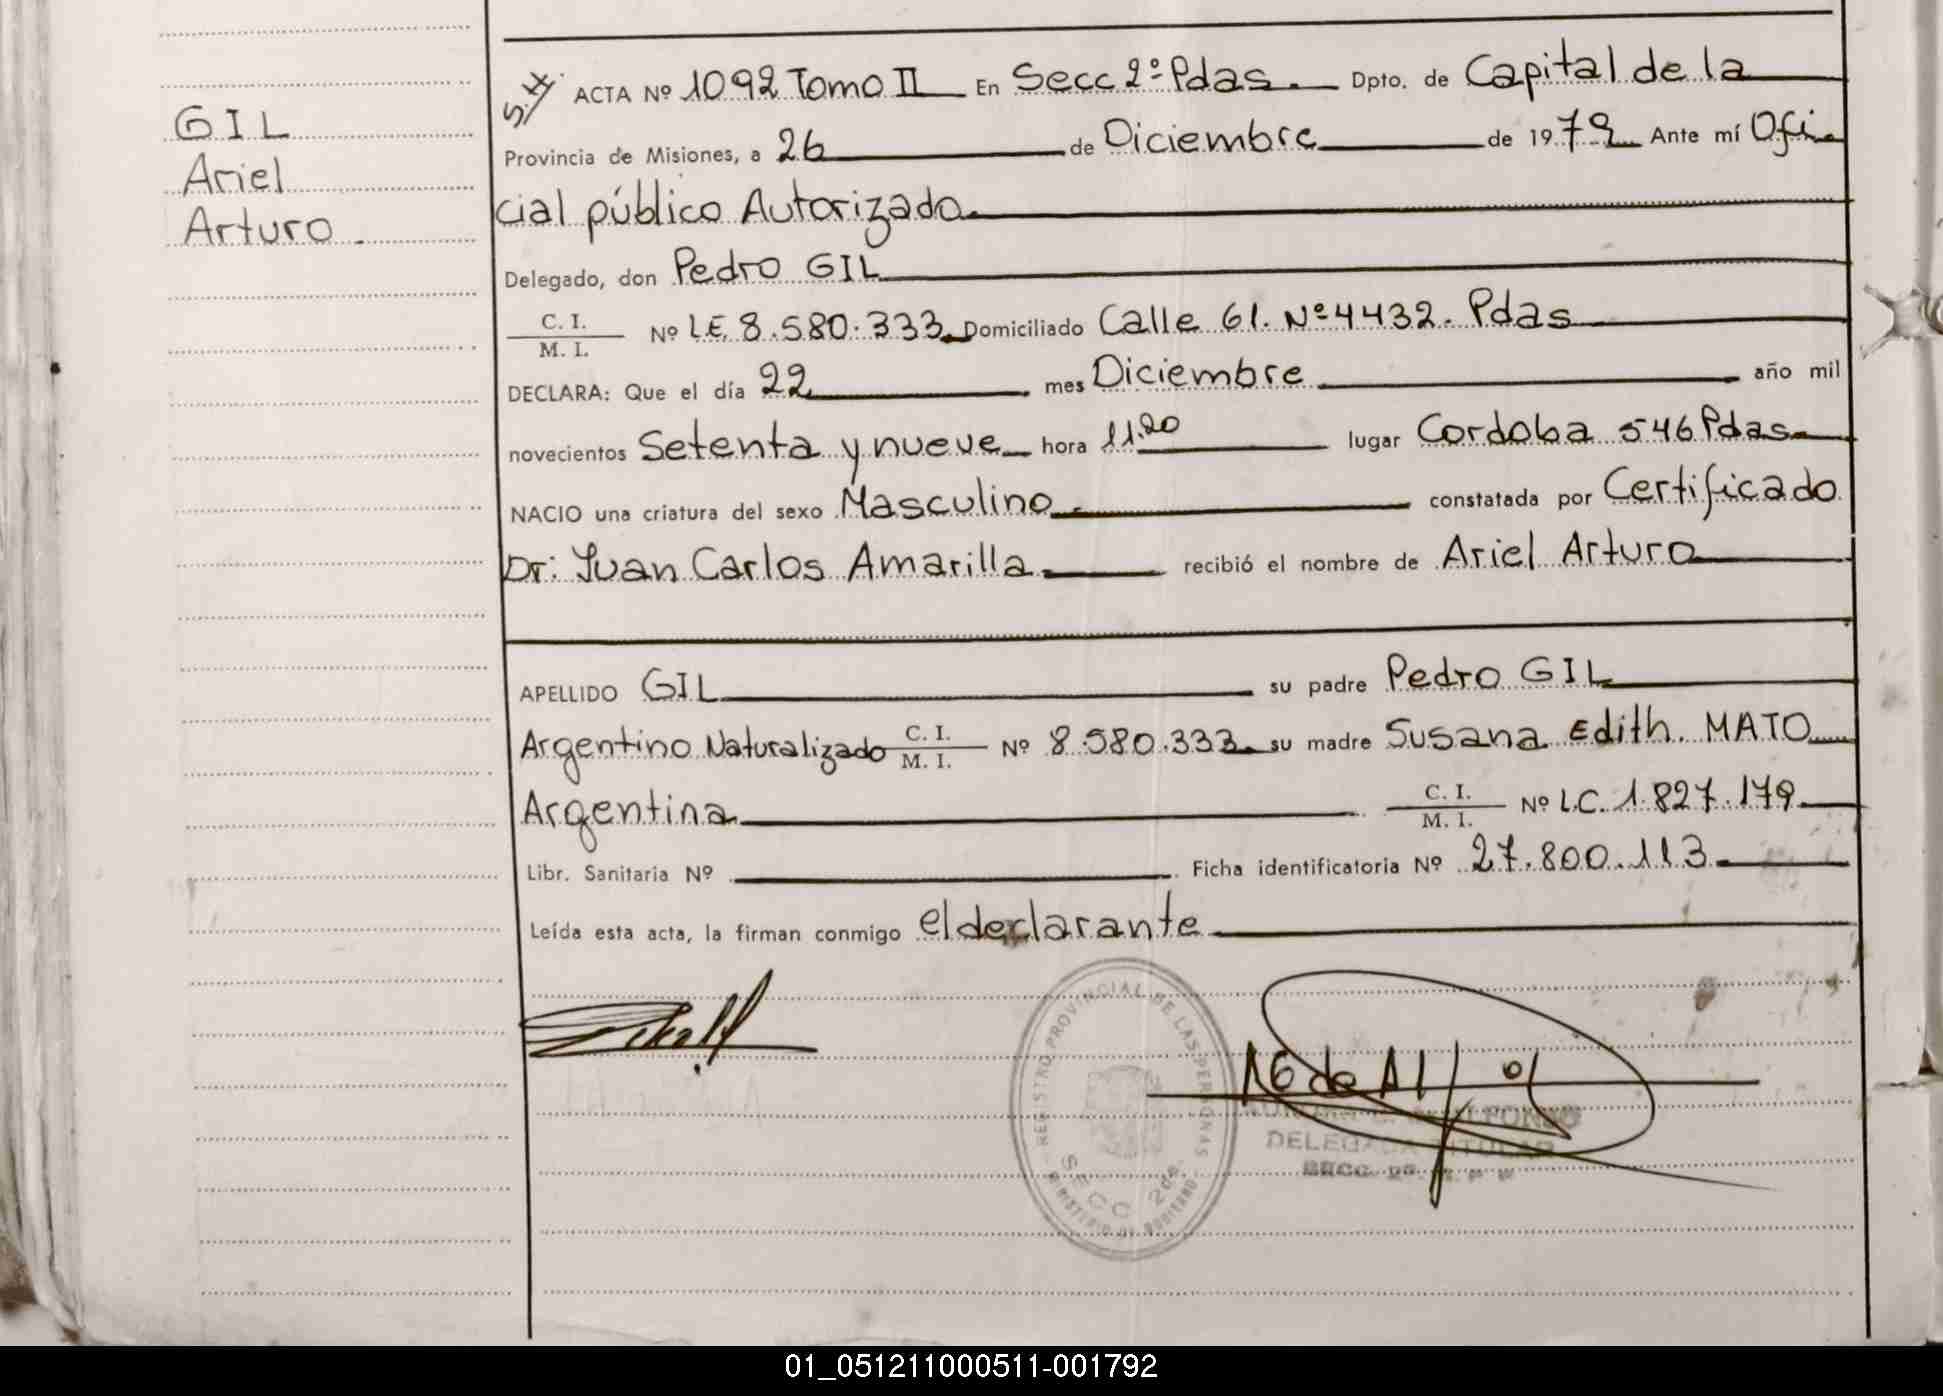 GIL
Ariel
Arturo.
ACTA Nº 1092 Tomo II En Secc 2º Pdas. Dpto. de Capital de la
Provincia de Misiones, a 26 de Diciembre de 1979 Ante mí Ofi
cial público Autorizado.
Delegado, don Pedro GIL
C. I.
M. I. Nº L.E. 8.580.333. Domiciliado Calle 61. Nº 4432. Pdas
DECLARA: Que el día 22 mes Diciembre año mil
novecientos Setenta y nueve hora 11.20 lugar Cordoba 546 Pdas.
NACIO una criatura del sexo Masculino. constatada por Certificado
Dr: Juan Carlos Amarilla. recibió el nombre de Ariel Arturo
APELLIDO GIL su padre Pedro GIL
Argentino Naturalizado C. I.
M. I. Nº 8.580.333. su madre Susana Edith. MATO
Argentina C. I.
M. I. Nº L.C. 1.827.179
Libr. Sanitaria Nº Ficha identificatoria Nº 27.800.113.
Leída esta acta, la firman conmigo el declarante
REGISTRO PROVINCIAL DE LAS PERSONAS
MINISTERIO DE GOBIERNO
SECC 2da.
DELEGADA TITULAR
01_051211000511-001792